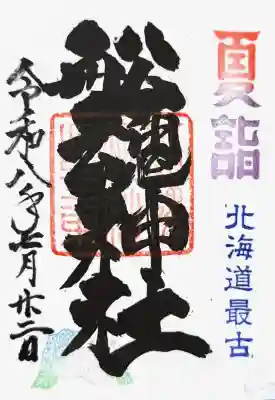 夏詣
北海道最古
船魂神社
令和八年七月廿二日